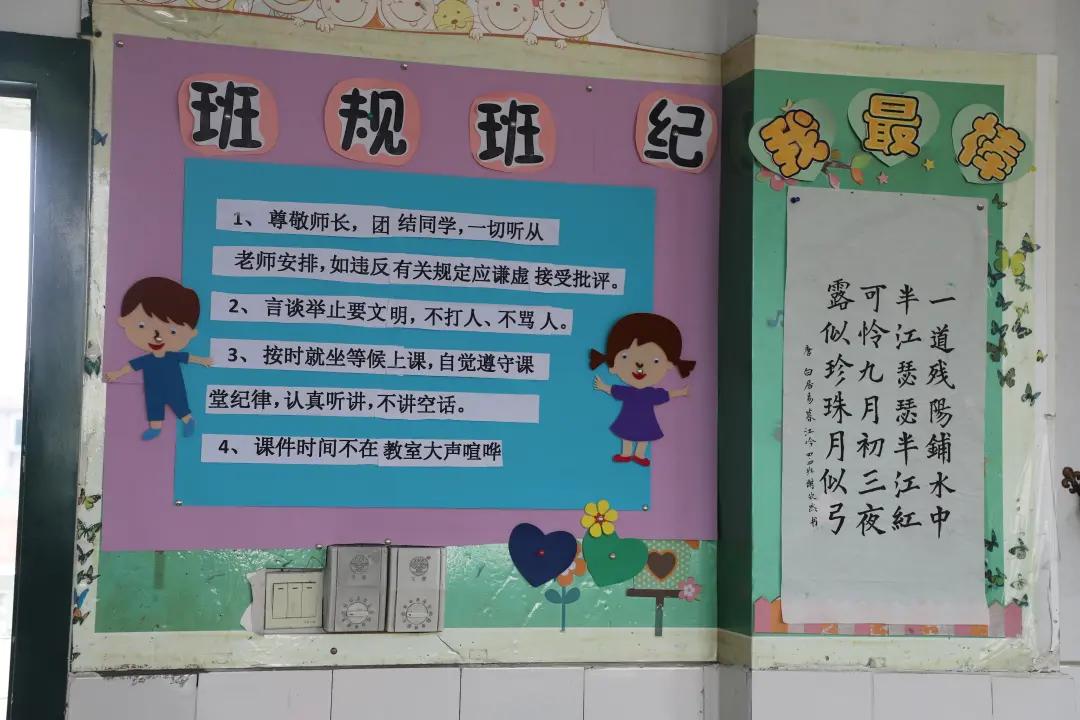 班规班纪
1、尊敬师长，团结同学，一切听从
老师安排，如违反有关规定应谦虚接受批评。
2、言谈举止要文明，不打人、不骂人。
3、按时就坐等候上课，自觉遵守课
堂纪律，认真听讲，不讲空话。
4、课件时间不在教室大声喧哗
我最棒
一道残陽鋪水中
半江瑟瑟半江紅
可怜九月初三夜
露似珍珠月似弓
唐白居易暮江吟